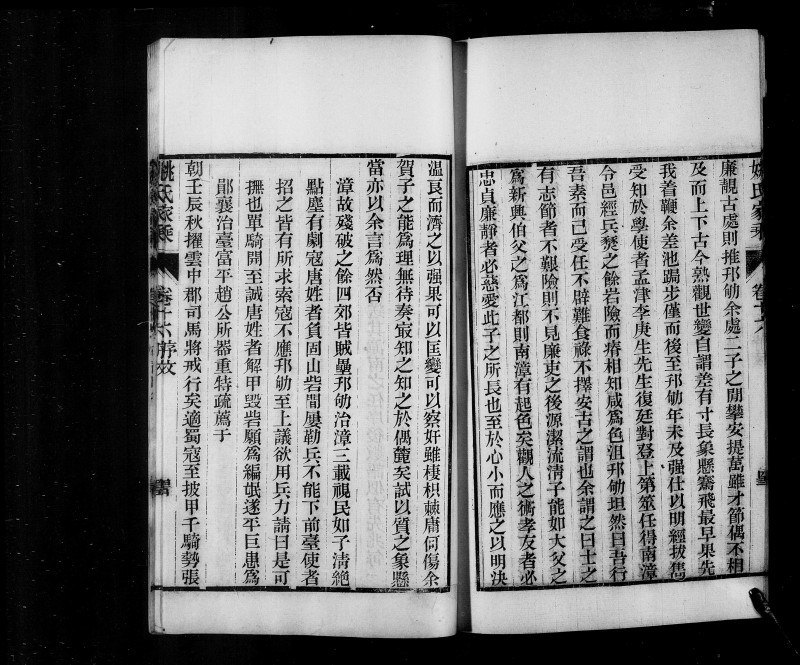 姚氏家乘
卷十六
廉靚古處則推邦劬余處二子之間攀安提萬雖才節偶不相
及而上下古今熟觀世變自謂差有寸長象懸騫飛最早果先
我着鞭余差池跼步僅而後至邦劬年未及强仕以明經拔雋
受知於學使者孟津李庚生先生復廷對登上第筮任得南漳
令邑經兵燹之餘岩險而瘠相知咸為色沮邦劬坦然曰吾行
吾素而已受任不辟難食祿不擇安古之謂也余謂之曰士之
有志節者不艱險則不見廉吏之後源潔流淸子能如大父之
為新興伯父之為江都則南漳有起色矣觀人之術孝友者必
忠貞廉靜者必慈愛此子之所長也至於心小而應之以明決
温良而濟之以强果可以匡變可以察奸雖棲枳棘庸何傷余
賀子之能為理無待奏最知之知之於偶麓矣試以質之象懸
當亦以余言為然否
漳故殘破之餘四郊皆賊壘邦劬治漳三載視民如子淸絶
點塵有劇寇唐姓者負固山砦間屢勒兵不能下前臺使者
招之皆有所求索寇不應邦劬至上議欲用兵力請曰是可
撫也單騎開至誠唐姓者解甲毁砦願為編氓遂平巨患為
鄖襄治臺富平趙公所器重特疏薦于
朝壬辰秋擢雲中郡司馬將戒行矣適蜀寇至披甲千騎勢張
姚氏家乘
卷十六序效